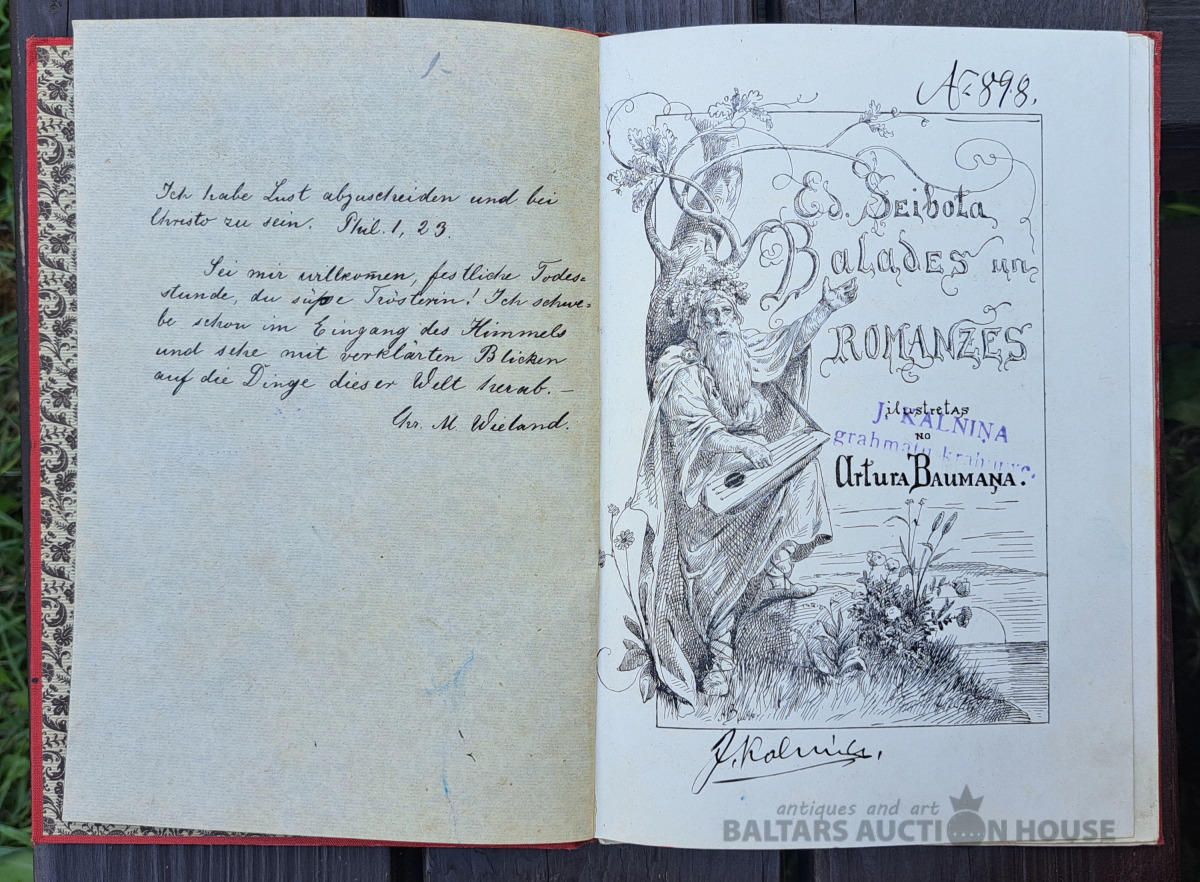 Ich habe Lust abzuscheiden und bei
Christo zu sein. Phil. 1, 23.
Sei mir willkom̄en, festliche Todes=
stunde, du süße Trösterin! Ich schwe=
be schon im Eingang des Himmels
und sehe mit verklärten Blicken
auf die Dinge dieser Welt herab. —
Chr. M. Wieland.
№ 898.
Ed. Seibota
Balades un
ROMANZES
ilustretas
no
Artura Baumaņa.
J. KALNIŅA
grahmatu krahtuve.
J. Kalniņš.
antiques and art
BALTARS AUCTION HOUSE